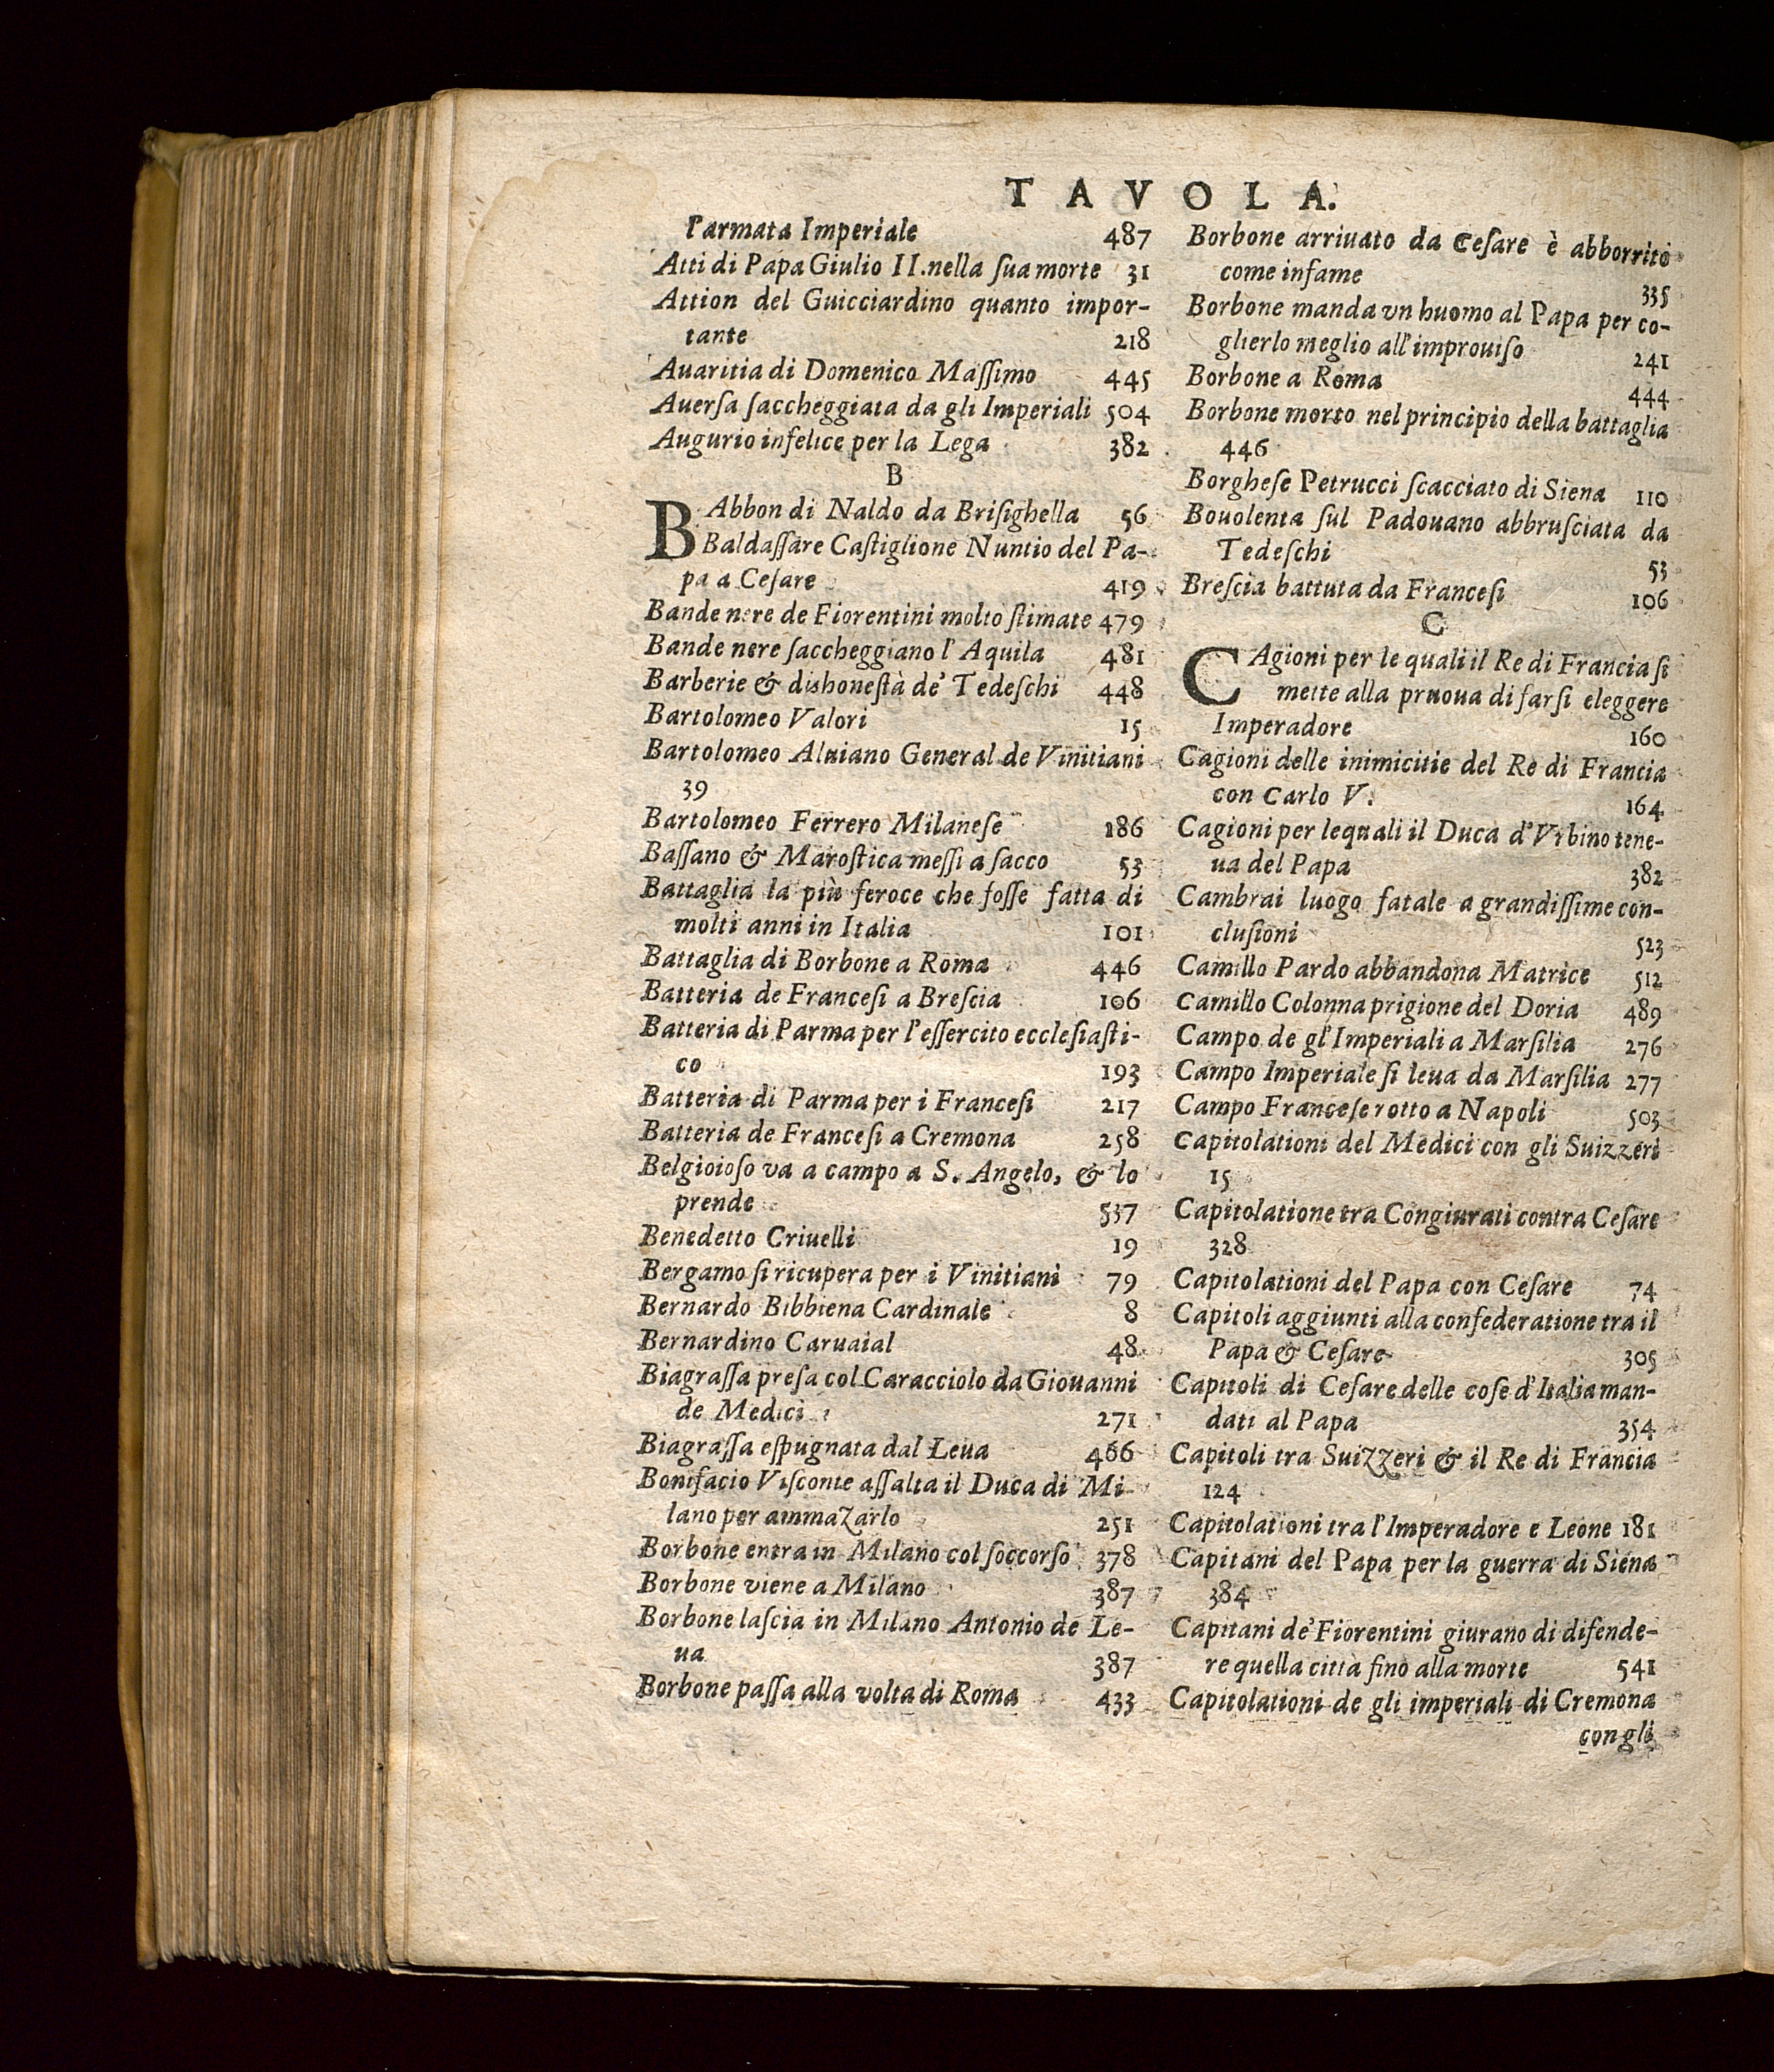 TAVOLA.
l'armata Imperiale 487
Atti di Papa Giulio II. nella ſua morte 31
Attion del Guicciardino quanto impor-
tante 218
Auaritia di Domenico Maſſimo 445
Auerſa ſaccheggiata da gli Imperiali 504
Augurio infelice per la Lega 382
B
BAbbon di Naldo da Briſighella 56
Baldaſſare Caſtiglione Nuntio del Pa-
pa a Ceſare 419
Bande nere de Fiorentini molto ſtimate 479
Bande nere ſaccheggiano l'Aquila 481
Barberie & dishoneſtà de' Tedeſchi 448
Bartolomeo Valori 15
Bartolomeo Aluiano General de Vinitiani
39
Bartolomeo Ferrero Milaneſe 186
Baſſano & Maroſtica meſſi a ſacco 53
Battaglia la più feroce che foſſe fatta di
molti anni in Italia 101
Battaglia di Borbone a Roma 446
Batteria de Franceſi a Breſcia 106
Batteria di Parma per l'eſſercito eccleſiaſti-
co 193
Batteria di Parma per i Franceſi 217
Batteria de Franceſi a Cremona 258
Belgioioſo va a campo a S. Angelo, & lo
prende 537
Benedetto Criuelli 19
Bergamo ſi ricupera per i Vinitiani 79
Bernardo Bibbiena Cardinale 8
Bernardino Caruaial 48
Biagraſſa preſa col Caracciolo da Giouanni
de Medici 271
Biagraſſa eſpugnata dal Leua 466
Bonifacio Viſconte aſſalta il Duca di Mi-
lano per ammazarlo 251
Borbone entra in Milano col ſoccorſo 378
Borbone viene a Milano 387
Borbone laſcia in Milano Antonio de Le-
ua 387
Borbone paſſa alla volta di Roma 433
Borbone arriuato da Ceſare è abborrito
come infame 335
Borbone manda vn huomo al Papa per co-
glierlo meglio all'improuiſo 241
Borbone a Roma 444
Borbone morto nel principio della battaglia
446
Borgheſe Petrucci ſcacciato di Siena 110
Bouolenta ſul Padouano abbruſciata da
Tedeſchi 53
Breſcia battuta da Franceſi 106
C
CAgioni per le quali il Re di Francia ſi
mette alla pruoua di farſi eleggere
Imperadore 160
Cagioni delle inimicitie del Re di Francia
con Carlo V. 164
Cagioni per lequali il Duca d'Vrbino tene-
ua del Papa 382
Cambrai luogo fatale a grandiſſime con-
cluſioni 523
Camillo Pardo abbandona Matrice 512
Camillo Colonna prigione del Doria 489
Campo de gl'Imperiali a Marſilia 276
Campo Imperiale ſi leua da Marſilia 277
Campo Franceſe rotto a Napoli 503
Capitolationi del Medici con gli Suizzeri
15
Capitolatione tra Congiurati contra Ceſare
328
Capitolationi del Papa con Ceſare 74
Capitoli aggiunti alla confederatione tra il
Papa & Ceſare 305
Capitoli di Ceſare delle coſe d'Italia man-
dati al Papa 354
Capitoli tra Suizzeri & il Re di Francia
124
Capitolationi tra l'Imperadore e Leone 181
Capitani del Papa per la guerra di Siena
384
Capitani de' Fiorentini giurano di difende-
re quella città fino alla morte 541
Capitolationi de gli imperiali di Cremona
con gli